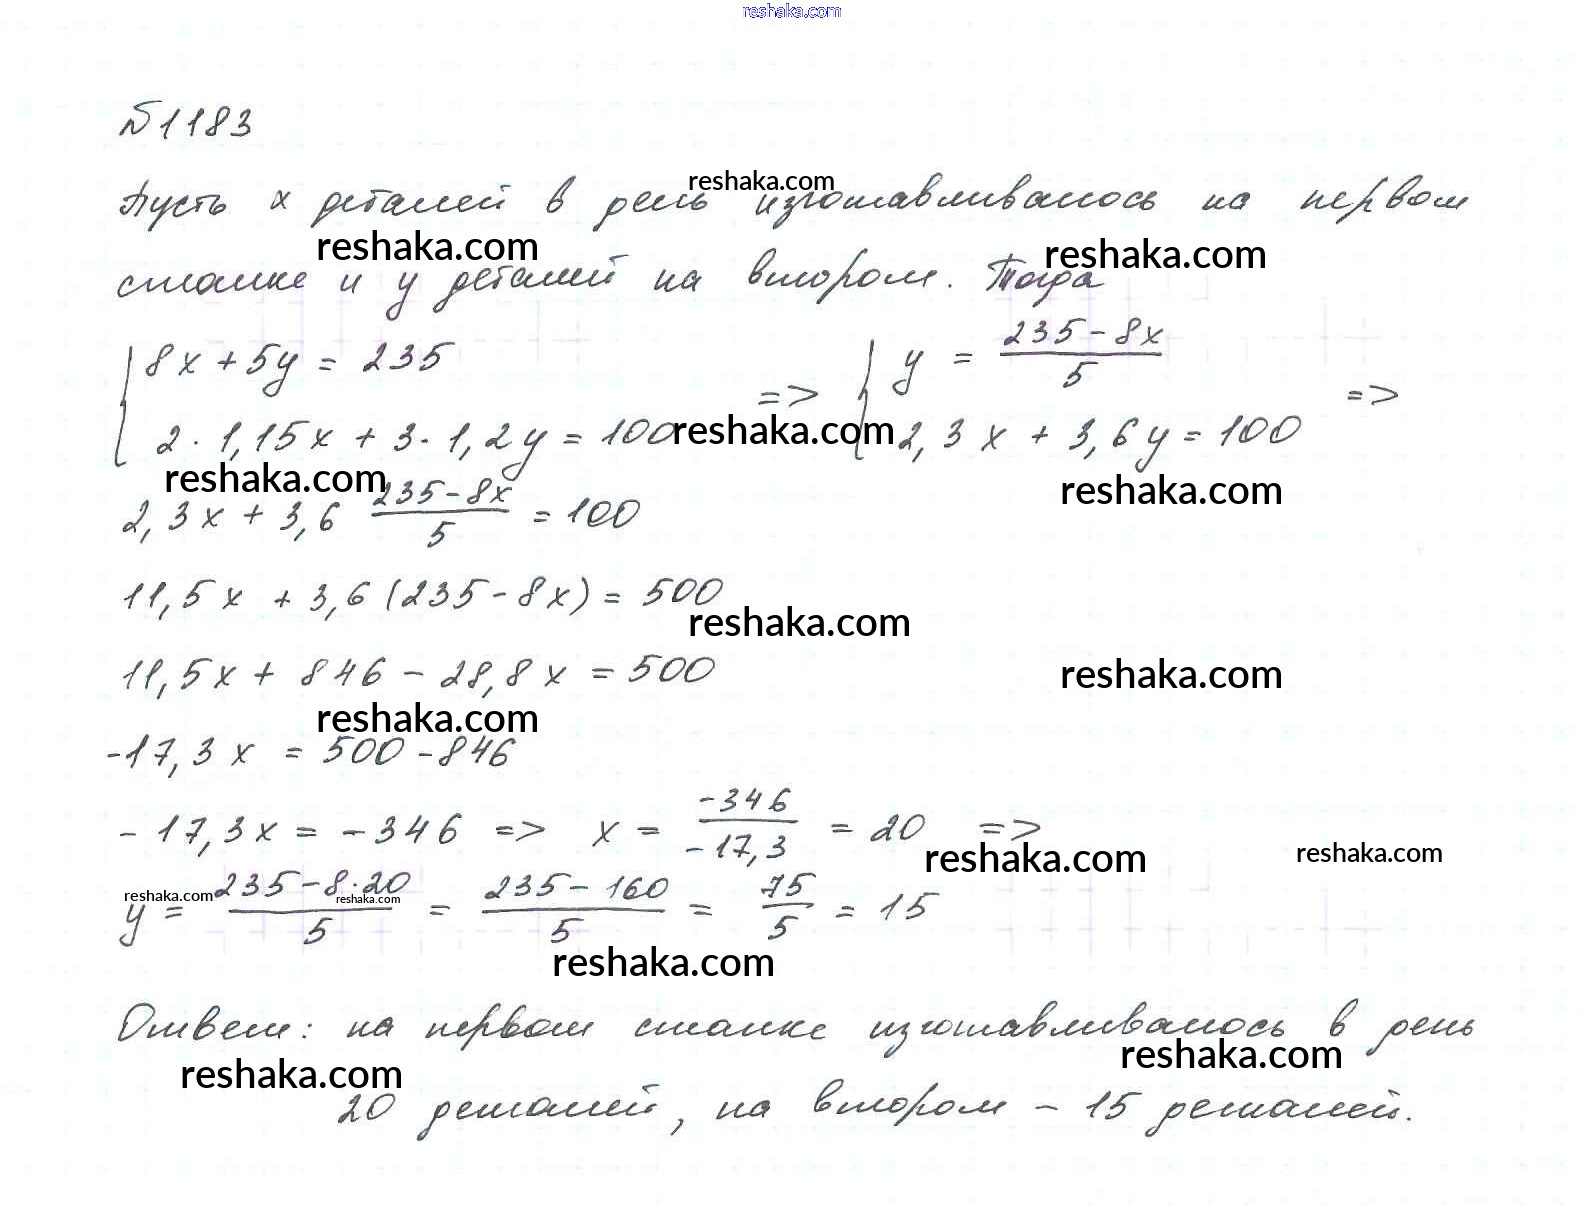 reshaka.com
№1183
reshaka.com
Пусть x деталей в день изготавливалось на первом
reshaka.com reshaka.com
станке и y деталей на втором. Тогда
{ 8x + 5y = 235 => { y = (235 - 8x)/5 =>
2 · 1,15x + 3 · 1,2y = 100 2,3x + 3,6y = 100
reshaka.com
reshaka.com reshaka.com
2,3x + 3,6 (235 - 8x)/5 = 100
11,5x + 3,6(235 - 8x) = 500
reshaka.com
11,5x + 846 - 28,8x = 500
reshaka.com
reshaka.com
-17,3x = 500 - 846
-17,3x = -346 => x = -346/-17,3 = 20 =>
reshaka.com reshaka.com
reshaka.com reshaka.com
y = (235 - 8·20)/5 = (235 - 160)/5 = 75/5 = 15
reshaka.com
Ответ: на первом станке изготавливалось в день
reshaka.com reshaka.com
20 деталей, на втором - 15 деталей.